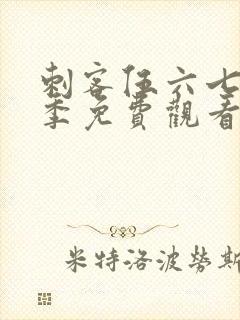 刺客伍六七
季免費觀看
米特洛波勞斯